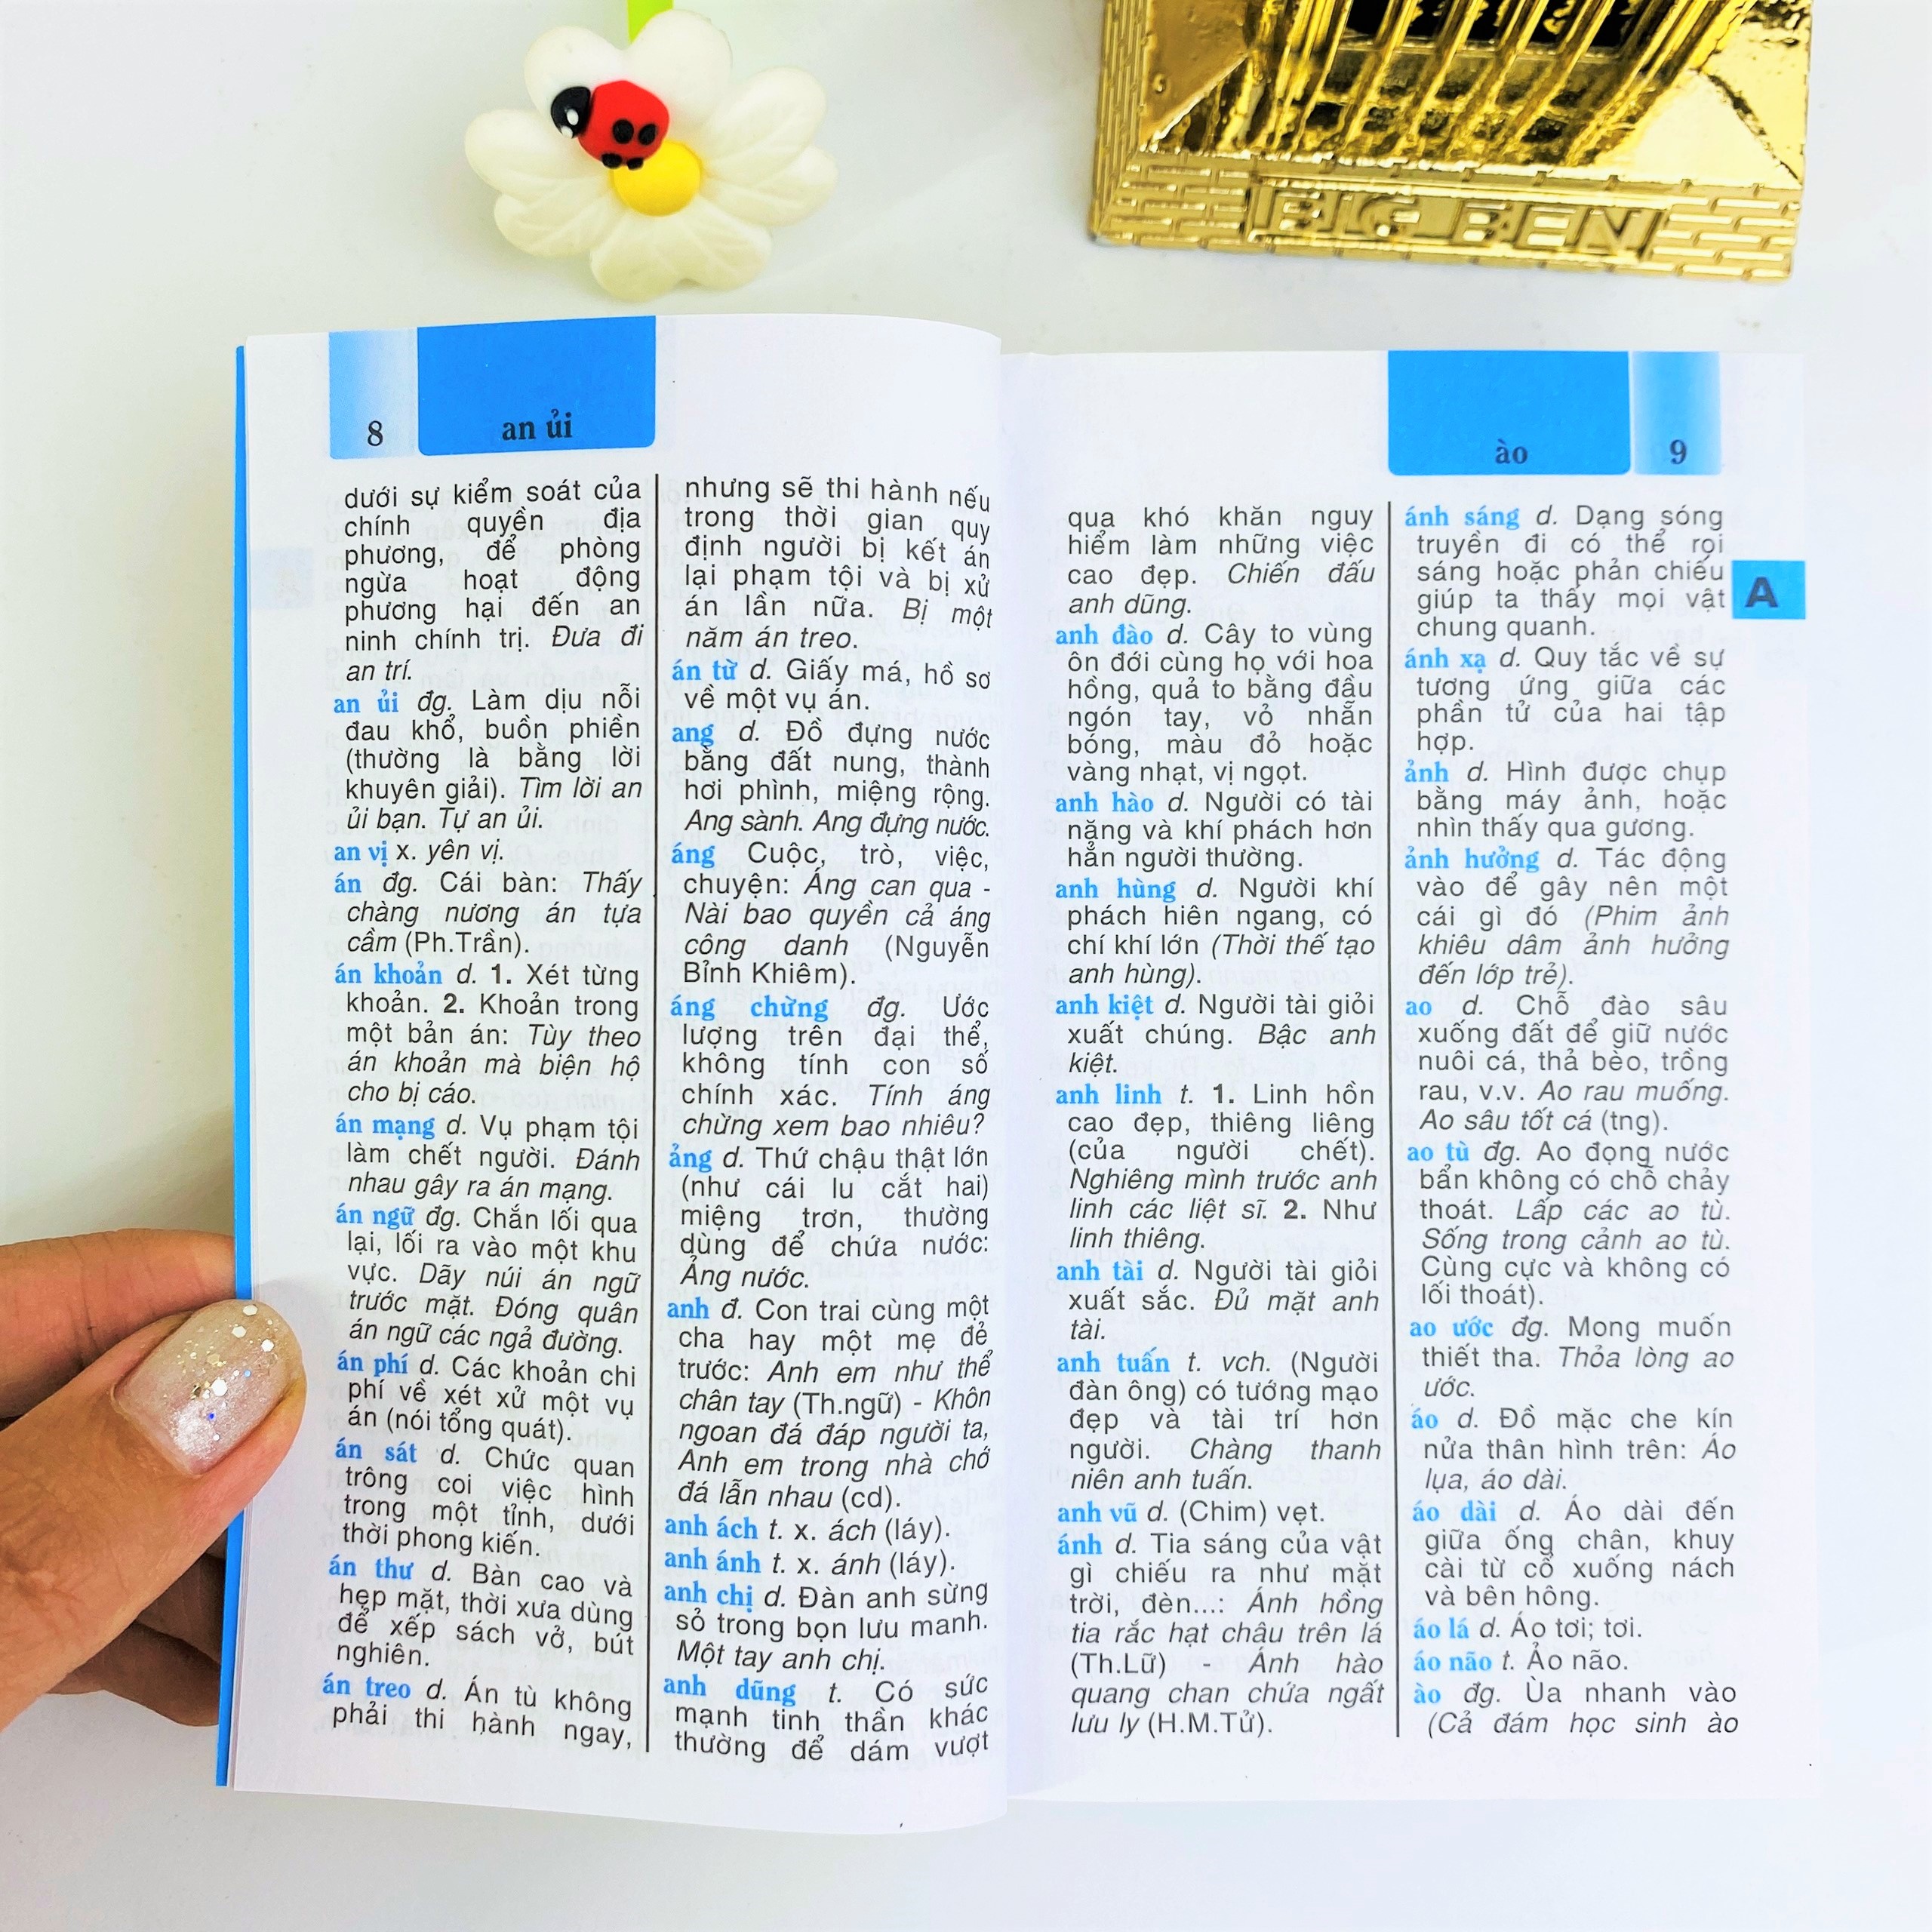 BIG BEN
8
an ủi
dưới sự kiểm soát của
chính quyền địa
phương, để phòng
ngừa hoạt động
phương hại đến an
ninh chính trị. Đưa đi
an trí.
an ủi đg. Làm dịu nỗi
đau khổ, buồn phiền
(thường là bằng lời
khuyên giải). Tìm lời an
ủi bạn. Tự an ủi.
an vị x. yên vị.
án đg. Cái bàn: Thấy
chàng nương án tựa
cầm (Ph.Trần).
án khoản d. 1. Xét từng
khoản. 2. Khoản trong
một bản án: Tùy theo
án khoản mà biện hộ
cho bị cáo.
án mạng d. Vụ phạm tội
làm chết người. Đánh
nhau gây ra án mạng.
án ngữ đg. Chắn lối qua
lại, lối ra vào một khu
vực. Dãy núi án ngữ
trước mặt. Đóng quân
án ngữ các ngả đường.
án phí d. Các khoản chi
phí về xét xử một vụ
án (nói tổng quát).
án sát d. Chức quan
trông coi việc hình
trong một tỉnh, dưới
thời phong kiến.
án thư d. Bàn cao và
hẹp mặt, thời xưa dùng
để xếp sách vở, bút
nghiên.
án treo d. Án tù không
phải thi hành ngay,
nhưng sẽ thi hành nếu
trong thời gian quy
định người bị kết án
lại phạm tội và bị xử
án lần nữa. Bị một
năm án treo.
án từ d. Giấy má, hồ sơ
về một vụ án.
ang d. Đồ đựng nước
bằng đất nung, thành
hơi phình, miệng rộng.
Ang sành. Ang đựng nước.
áng Cuộc, trò, việc,
chuyện: Áng can qua -
Nài bao quyền cả áng
công danh (Nguyễn
Bỉnh Khiêm).
áng chừng đg. Ước
lượng trên đại thể,
không tính con số
chính xác. Tính áng
chừng xem bao nhiêu?
ảng d. Thứ chậu thật lớn
(như cái lu cắt hai)
miệng trơn, thường
dùng để chứa nước:
Ảng nước.
anh đ. Con trai cùng một
cha hay một mẹ đẻ
trước: Anh em như thể
chân tay (Th.ngữ) - Khôn
ngoan đá đáp người ta,
Anh em trong nhà chớ
đá lẫn nhau (cd).
anh ách t. x. ách (láy).
anh ánh t. x. ánh (láy).
anh chị d. Đàn anh sừng
sỏ trong bọn lưu manh.
Một tay anh chị.
anh dũng t. Có sức
mạnh tinh thần khác
thường để dám vượt
ào
9
qua khó khăn nguy
hiểm làm những việc
cao đẹp. Chiến đấu
anh dũng.
anh đào d. Cây to vùng
ôn đới cùng họ với hoa
hồng, quả to bằng đầu
ngón tay, vỏ nhẵn
bóng, màu đỏ hoặc
vàng nhạt, vị ngọt.
anh hào d. Người có tài
năng và khí phách hơn
hẳn người thường.
anh hùng d. Người khí
phách hiên ngang, có
chí khí lớn (Thời thế tạo
anh hùng).
anh kiệt d. Người tài giỏi
xuất chúng. Bậc anh
kiệt.
anh linh t. 1. Linh hồn
cao đẹp, thiêng liêng
(của người chết).
Nghiêng mình trước anh
linh các liệt sĩ. 2. Như
linh thiêng.
anh tài d. Người tài giỏi
xuất sắc. Đủ mặt anh
tài.
anh tuấn t. vch. (Người
đàn ông) có tướng mạo
đẹp và tài trí hơn
người. Chàng thanh
niên anh tuấn.
anh vũ d. (Chim) vẹt.
ánh d. Tia sáng của vật
gì chiếu ra như mặt
trời, đèn...: Ánh hồng
tia rắc hạt châu trên lá
(Th.Lữ) - Ánh hào
quang chan chứa ngất
lưu ly (H.M.Tử).
ánh sáng d. Dạng sóng
truyền đi có thể rọi
sáng hoặc phản chiếu
giúp ta thấy mọi vật
chung quanh.
ánh xạ d. Quy tắc về sự
tương ứng giữa các
phần tử của hai tập
hợp.
ảnh d. Hình được chụp
bằng máy ảnh, hoặc
nhìn thấy qua gương.
ảnh hưởng d. Tác động
vào để gây nên một
cái gì đó (Phim ảnh
khiêu dâm ảnh hưởng
đến lớp trẻ).
ao d. Chỗ đào sâu
xuống đất để giữ nước
nuôi cá, thả bèo, trồng
rau, v.v. Ao rau muống.
Ao sâu tốt cá (tng).
ao tù đg. Ao đọng nước
bẩn không có chỗ chảy
thoát. Lấp các ao tù.
Sống trong cảnh ao tù.
Cùng cực và không có
lối thoát).
ao ước đg. Mong muốn
thiết tha. Thỏa lòng ao
ước.
áo d. Đồ mặc che kín
nửa thân hình trên: Áo
lụa, áo dài.
áo dài d. Áo dài đến
giữa ống chân, khuy
cài từ cổ xuống nách
và bên hông.
áo lá d. Áo tơi; tơi.
áo não t. Ảo não.
ào đg. Ùa nhanh vào
(Cả đám học sinh ào
A